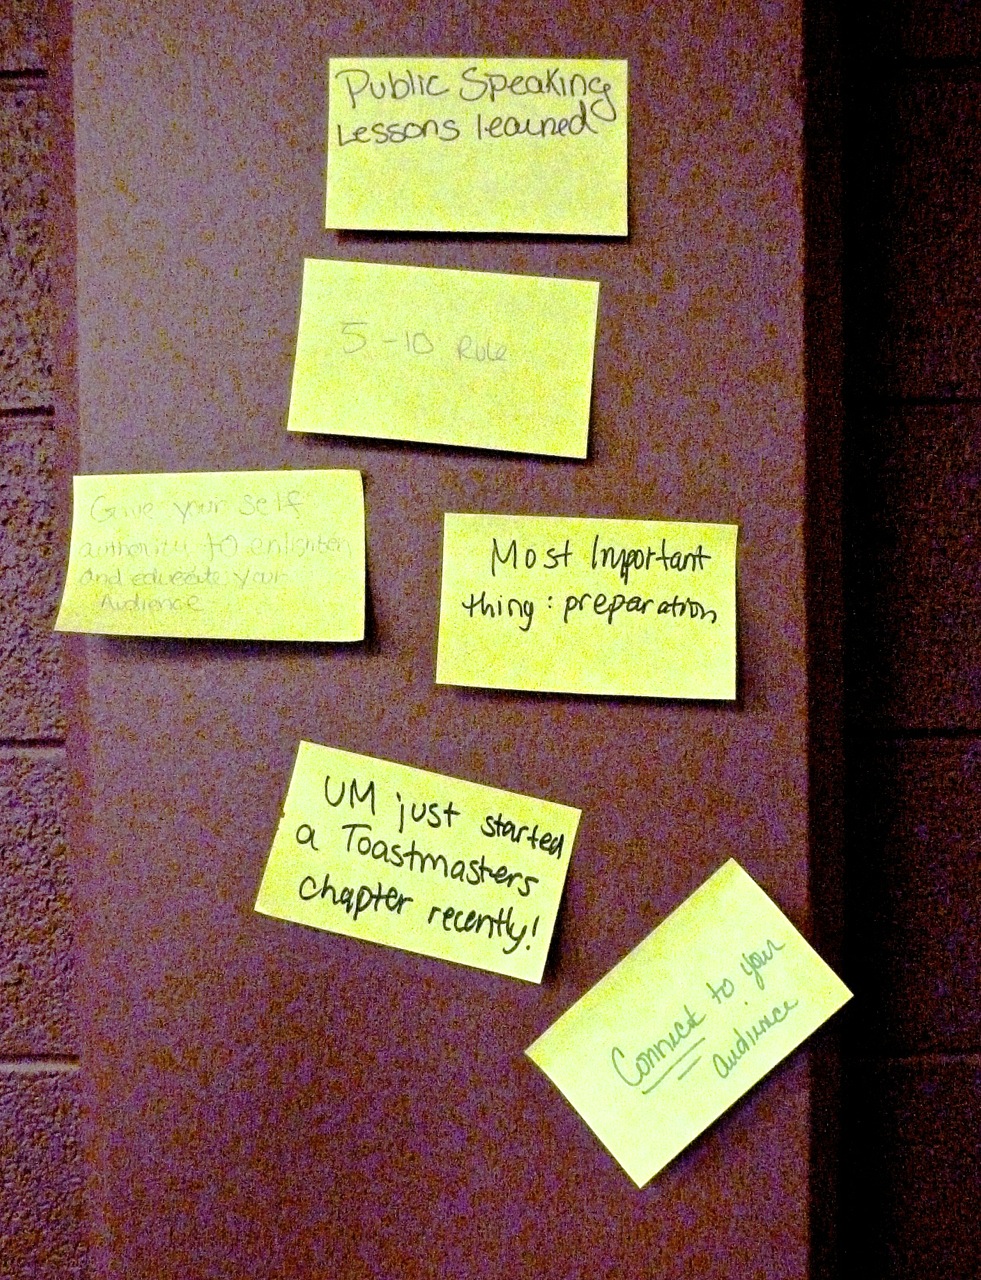 Public Speaking
Lessons learned
5-10 Rule
Give your self
authority to enlighten
and educate your
Audience
Most Important
thing: preparation
UM just started
a Toastmasters
chapter recently!
Connect to your
audience